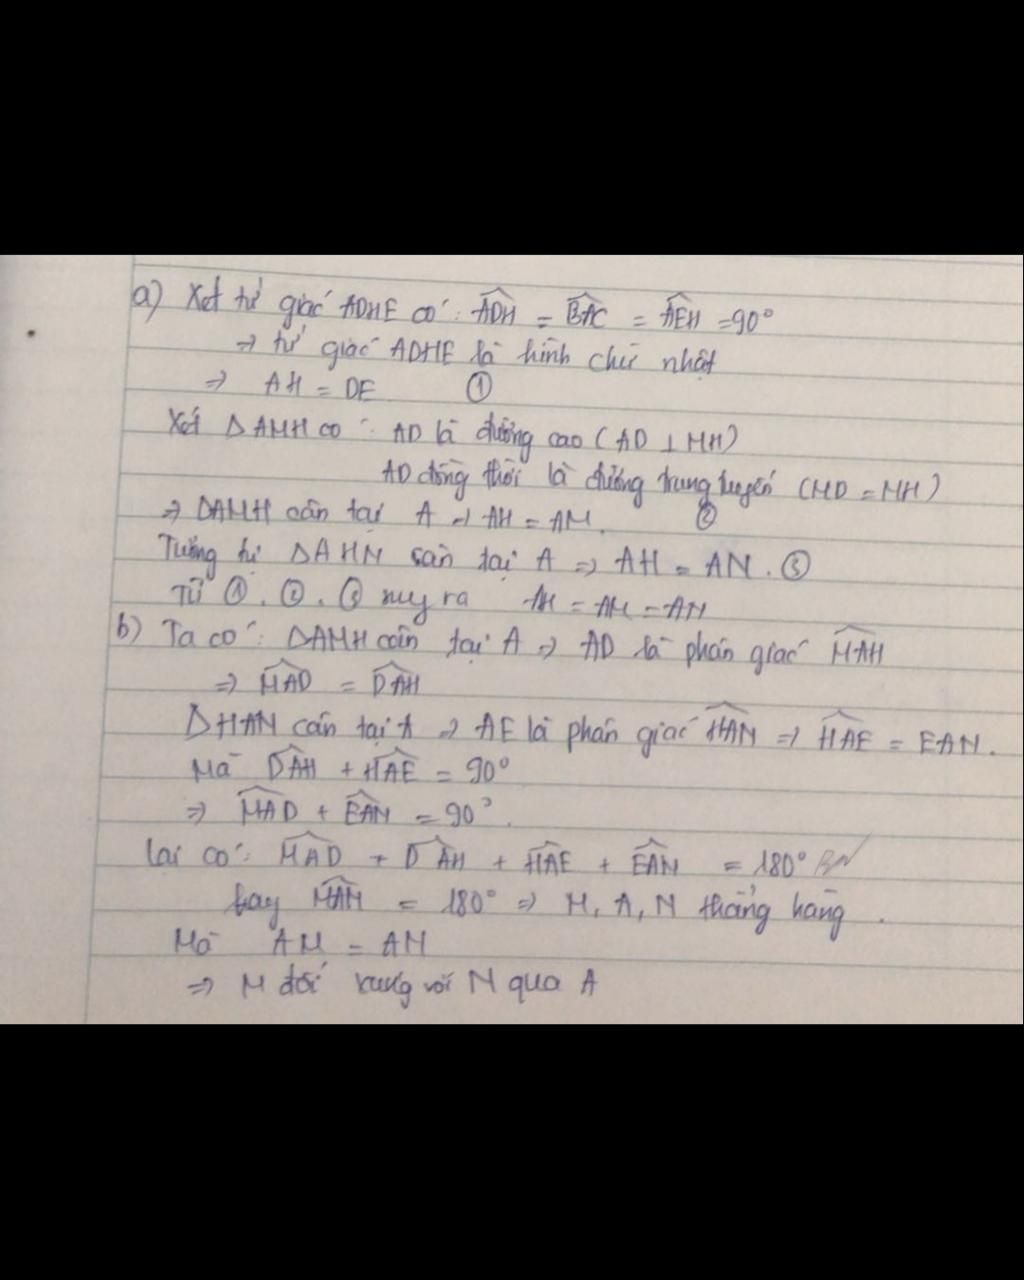 a) Xét tứ giác ADHE có: ADH = BAC = AEH = 90°
⇒ tứ giác ADHE là hình chữ nhật
⇒ AH = DE ①
Xét ΔAMH có: AD là đường cao (AD ⊥ MH)
AD đồng thời là đường trung tuyến (MD = MH)
⇒ ΔAMH cân tại A ⇒ AH = AM. ②
Tương tự ΔAHN cân tại A ⇒ AH = AN. ③
Từ ①, ②, ③ suy ra AH = AM = AN
b) Ta có: ΔAMH cân tại A ⇒ AD là phân giác MAH
⇒ MAD = DAH
ΔHAN cân tại A ⇒ AE là phân giác HAN ⇒ HAE = EAN.
Mà DAH + HAE = 90°
⇒ MAD + EAN = 90°.
Lại có: MAD + DAH + HAE + EAN = 180°
hay MAN = 180° ⇒ M, A, N thẳng hàng.
Mà AM = AN
⇒ M đối xứng với N qua A